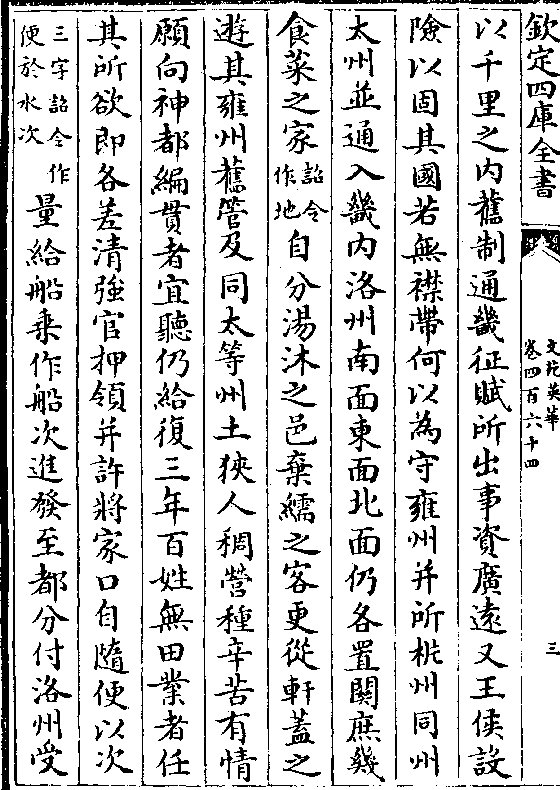 欽定四庫全書
文苑英華
卷四百六十四
三
以千里之内舊制通畿征賦所出事資廣遠又王侯設
險以固其國若無襟帶何以為守雍州并所㧞州同州
太州並通入畿内洛州南面東面北面仍各置關庶幾
食菜之家詔令作地自分湯沐之邑棄繻之客更從軒蓋之
遊其雍州舊管及同太等州土狹人稠營種辛苦有情
願向神都編貫者宜聽仍給復三年百姓無田業者任
其所欲即各差清強官押領并許將家口自隨便以次
三字詔令作便於水次量給船乗作船次進發至都分付洛州受